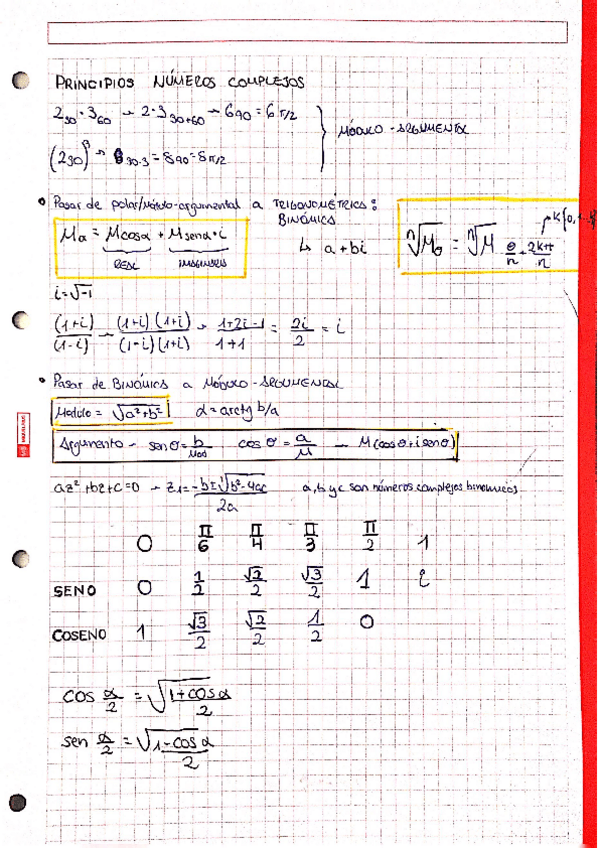 PRINCIPIOS NÚMEROS COMPLEJOS
2₃₀ · 3₆₀ → 2·3₃₀₊₆₀ → 6₉₀ = 6 π/2
MÓDULO - ARGUMENTAL
(2₃₀)³ → 8₃₀.₃ = 8₉₀ = 8π/2
• Pasar de polar/módulo-argumental a TRIGONOMÉTRICA:
BINÓMICA
Mα = M cosα + M senα · i
REAL IMAGINARIA
↳ a + bi
ⁿ√Mθ = ⁿ√M θ/n + 2kπ/n
i = √-1
(1+i)/(1-i) → (1+i)·(1+i)/(1-i)(1+i) → 1+2i-1/1+1 = 2i/2 = i
• Pasar de BINÓMICA a MÓDULO - ARGUMENTAL
Modulo = √a²+b² α = arctg b/a
Argumento → sen θ = b/Mod cos θ = a/M → M(cosθ + i senθ)
az² + bz + c = 0 → z₁ = -b±√b²-4ac/2a a, b y c son números complejos binomicos
0 π/6 π/4 π/3 π/2 1
SENO 0 1/2 √2/2 √3/2 1 i
COSENO 1 √3/2 √2/2 1/2 0
cos α/2 = √1+cosα/2
sen α/2 = √1-cosα/2